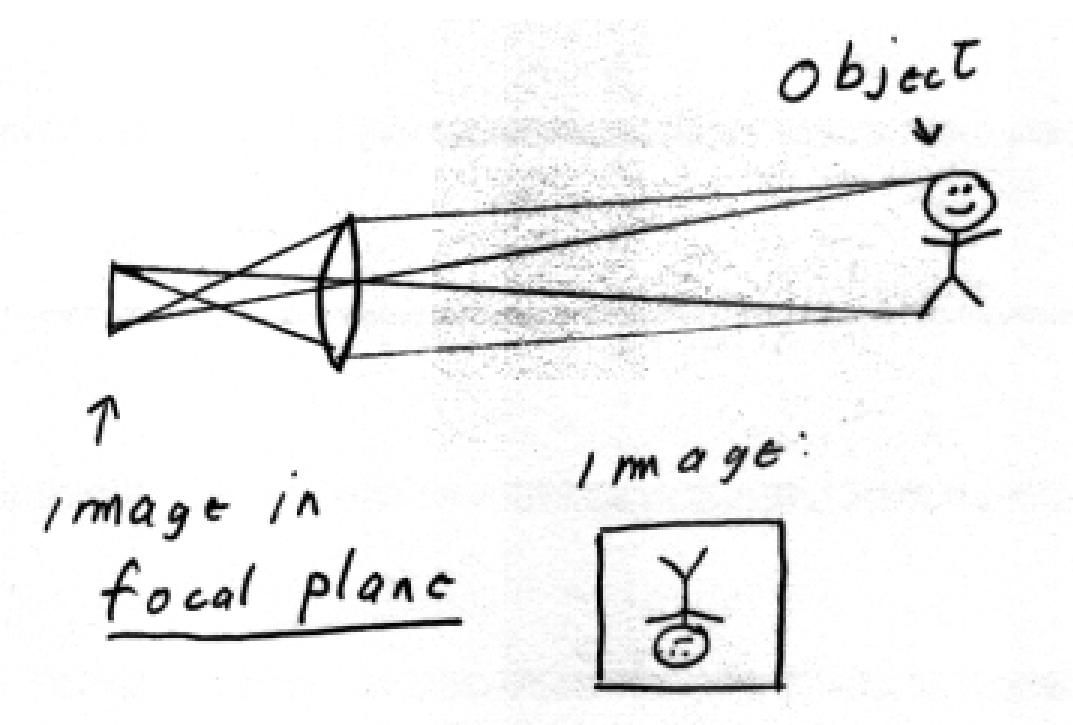 Object
Image in
focal plane
Image: